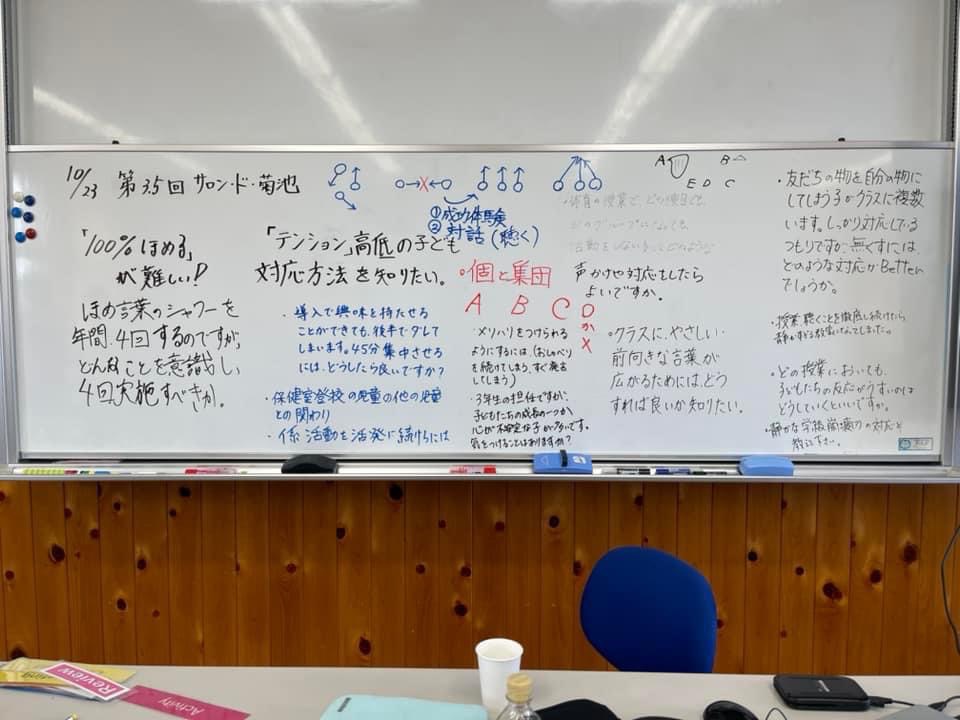 10/23 第35回 サロン・ド・菊池
「100%ほめる」
が難しい!
ほめ言葉のシャワーを
年間、4回するのですが、
どんなことを意識し、
4回実施すべきか。
①成功体験
②対話(聴く)
「テンション」高低の子ども
対応方法を知りたい。
・導入で興味を持たせる
ことができても、後半でダレて
しまいます。45分集中させる
には、どうしたら良いですか?
・保健室登校の児童の他の児童
との関わり
・係活動を活発に続けるには
・個と集団
A B C D
か
×
・メリハリをつけられる
ようにするには、(おしゃべり
を続けてしまう、すぐ発言
してしまう)
・3年生の担任ですが、
子どもたちの成長の一つか、
心が不安定な子が多いです。
気をつけることはありますか?
A B
E D C
・体育の授業で、どの種目でも、
どのグループになっても、
活動をしない
声かけや対応をしたら
よいですか。
・クラスに、やさしい
前向きな言葉が
広がるためには、どう
すれば良いか知りたい。
・友だちの物を自分の物に
してしまう子がクラスに複数
います。しっかり対応している
つもりですが、無くすには、
どのような対応がBetter
でしょうか。
・授業、聴くことを徹底し続けたら、
静かすぎる教室になってしまった。
・どの授業においても、
子どもたちの反応がうすいのは
どうしていくといいですか。
・静かな学級崩壊の対応を
教えて下さい。
Review
Activity